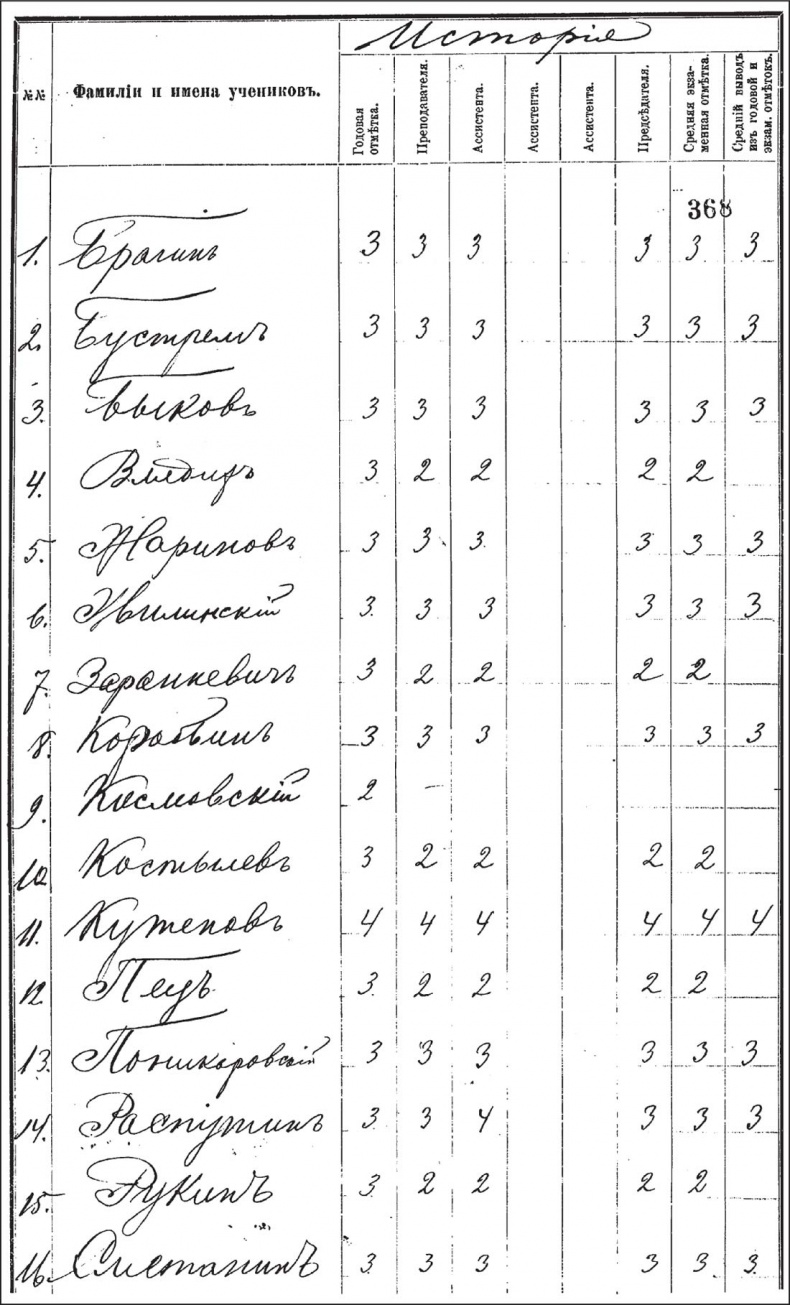 Исторія
№№ Фамиліи и имена учениковъ. Годовая отмѣтка. Преподавателя. Ассистента. Ассистента. Ассистента. Предсѣдателя. Средняя экзаменная отмѣтка. Средній выводъ изъ годовой и экзам. отмѣтокъ.
368
1. Брагинъ 3 3 3 3 3 3
2. Бустремъ 3 3 3 3 3 3
3. Быковъ 3 3 3 3 3 3
4. 3 2 2 2 2
5. Жариновъ 3 3 3 3 3 3
6. Жилинскій 3 3 3 3 3 3
7. Заранкевичъ 3 2 2 2 2
8. Коробьинъ 3 3 3 3 3 3
9. Космовскій 2 –
10. Костылевъ 3 2 2 2 2
11. Кутеповъ 4 4 4 4 4 4
12. Пецъ 3 2 2 2 2
13. Поникаровскій 3 3 3 3 3 3
14. Распутинъ 3 3 4 3 3 3
15. Рукинъ 3 2 2 2 2
16. Сметанинъ 3 3 3 3 3 3